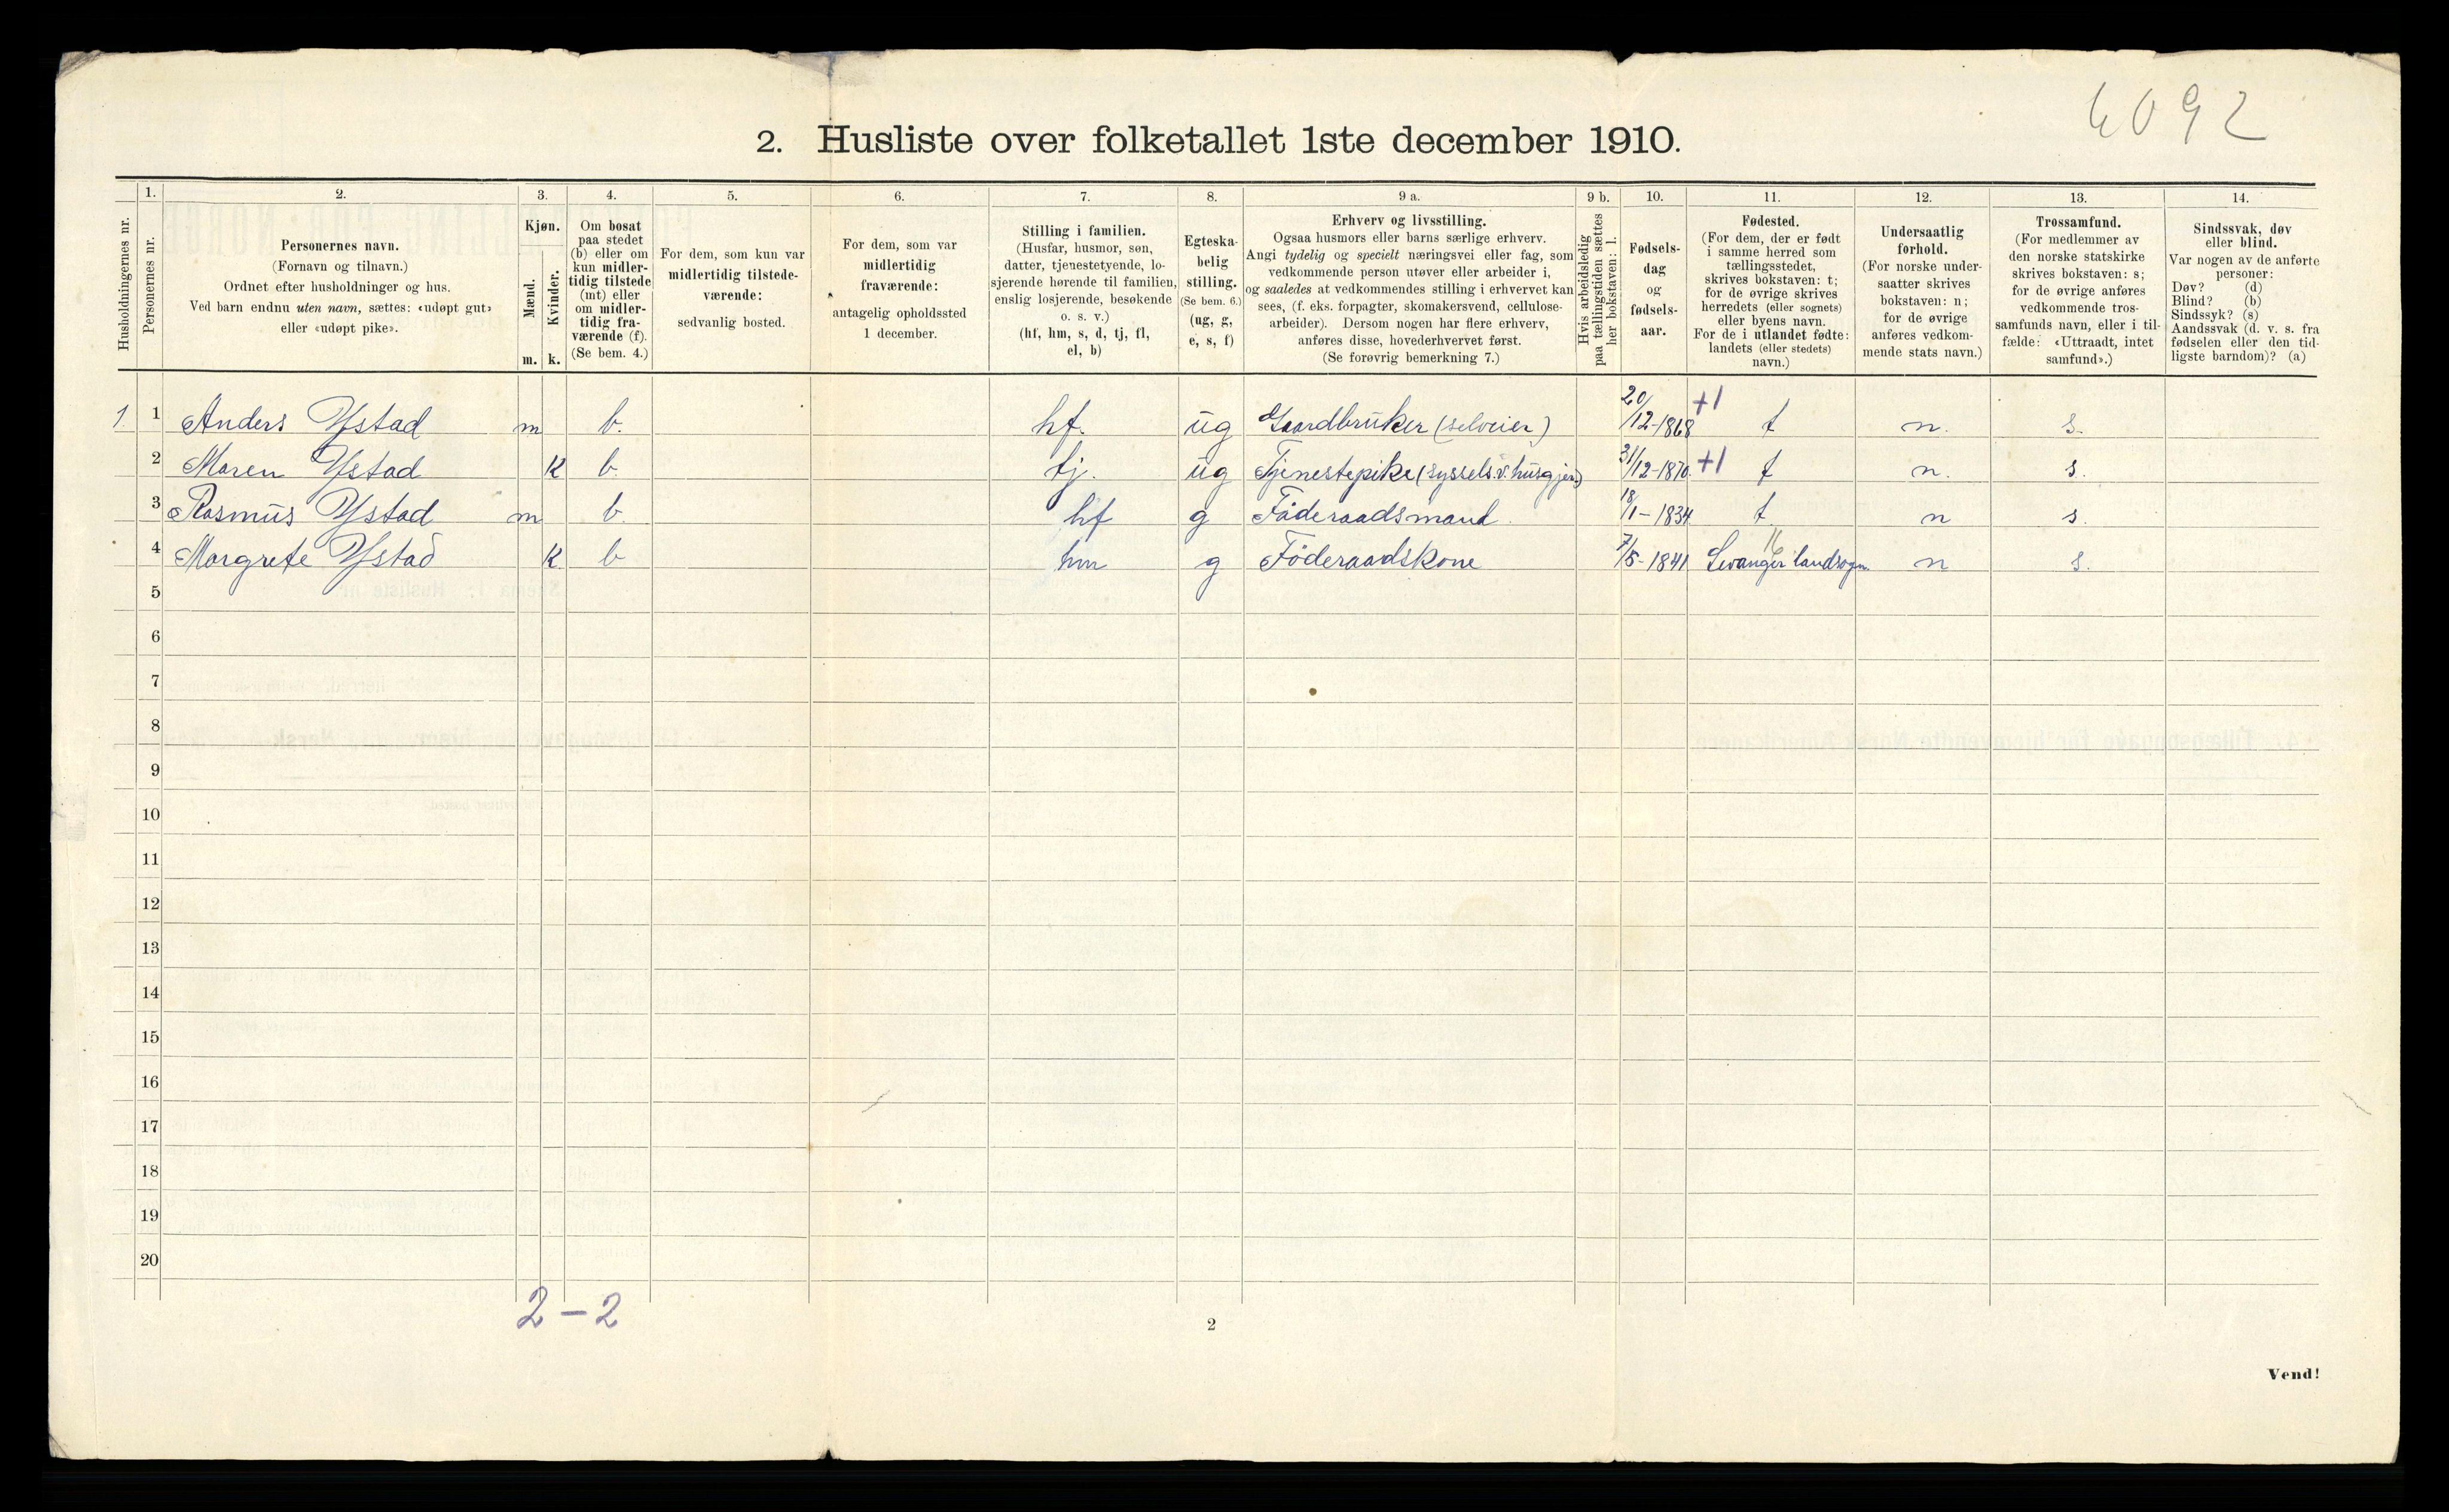 6092
2. Husliste over folketallet 1ste december 1910.
Husholdningernes nr.
1.
Personernes nr.
2.
Personernes navn.
(Fornavn og tilnavn.)
Ordnet efter husholdninger og hus.
Ved barn endnu uten navn, sættes: «udøpt gut»
eller «udøpt pike».
3.
Kjøn.
Mænd.
Kvinder.
m. k.
4.
Om bosat
paa stedet
(b) eller om
kun midler-
tidig tilstede
(mt) eller
om midler-
tidig fra-
værende (f).
(Se bem. 4.)
5.
For dem, som kun var
midlertidig tilstede-
værende:
sedvanlig bosted.
6.
For dem, som var
midlertidig
fraværende:
antagelig opholdssted
1 december.
7.
Stilling i familien.
(Husfar, husmor, søn,
datter, tjenestetyende, lo-
sjerende hørende til familien,
enslig losjerende, besøkende
o. s. v.)
(hf, hm, s, d, tj, fl,
el, b)
8.
Egteska-
belig
stilling.
(Se bem. 6.)
(ug, g,
e, s, f)
9 a.
Erhverv og livsstilling.
Ogsaa husmors eller barns særlige erhverv.
Angi tydelig og specielt næringsvei eller fag, som
vedkommende person utøver eller arbeider i,
og saaledes at vedkommendes stilling i erhvervet kan
sees, (f. eks. forpagter, skomakersvend, cellulose-
arbeider). Dersom nogen har flere erhverv,
anføres disse, hovederhvervet først.
(Se forøvrig bemerkning 7.)
9 b.
Hvis arbeidsledig
paa tællingstiden sættes
her bokstaven: l.
10.
Fødsels-
dag
og
fødsels-
aar.
11.
Fødested.
(For dem, der er født
i samme herred som
tællingsstedet,
skrives bokstaven: t;
for de øvrige skrives
herredets (eller sognets)
eller byens navn.
For de i utlandet fødte:
landets (eller stedets)
navn.)
12.
Undersaatlig
forhold.
(For norske under-
saatter skrives
bokstaven: n;
for de øvrige
anføres vedkom-
mende stats navn.)
13.
Trossamfund.
(For medlemmer av
den norske statskirke
skrives bokstaven: s;
for de øvrige anføres
vedkommende tros-
samfunds navn, eller i til-
fælde: «Uttraadt, intet
samfund».)
14.
Sindssvak, døv
eller blind.
Var nogen av de anførte
personer:
Døv? (d)
Blind? (b)
Sindssyk? (s)
Aandssvak (d. v. s. fra
fødselen eller den tid-
ligste barndom)? (a)
1 1 Anders Ystad m b. hf. ug Gaardbruker (selveier) 20/12-1868 +1 t n. s.
2 Maren Ystad k b. tj. ug Tjenestepike (syssels. v. husgjern.) 31/12-1870. +1 t n. s.
3 Rasmus Ystad m b. hf g Føderaadsmand. 18/1-1834 t n s.
4 Margrete Ystad k b hm g Føderaadskone 7/5-1841 Levanger landsogn. 11 n s.
5
6
7
8
9
10
11
12
13
14
15
16
17
18
19
20
2-2
2
Vend!